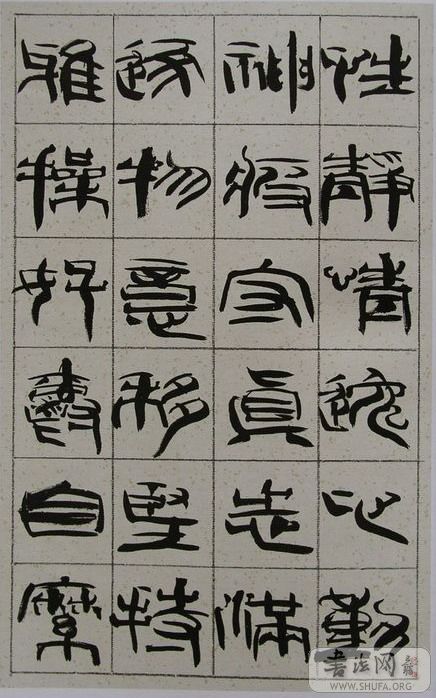 性靜情逸心動
神疲守真志滿
逐物意移堅持
雅操好爵自縻
書法网
WWW.SHUFA.ORG